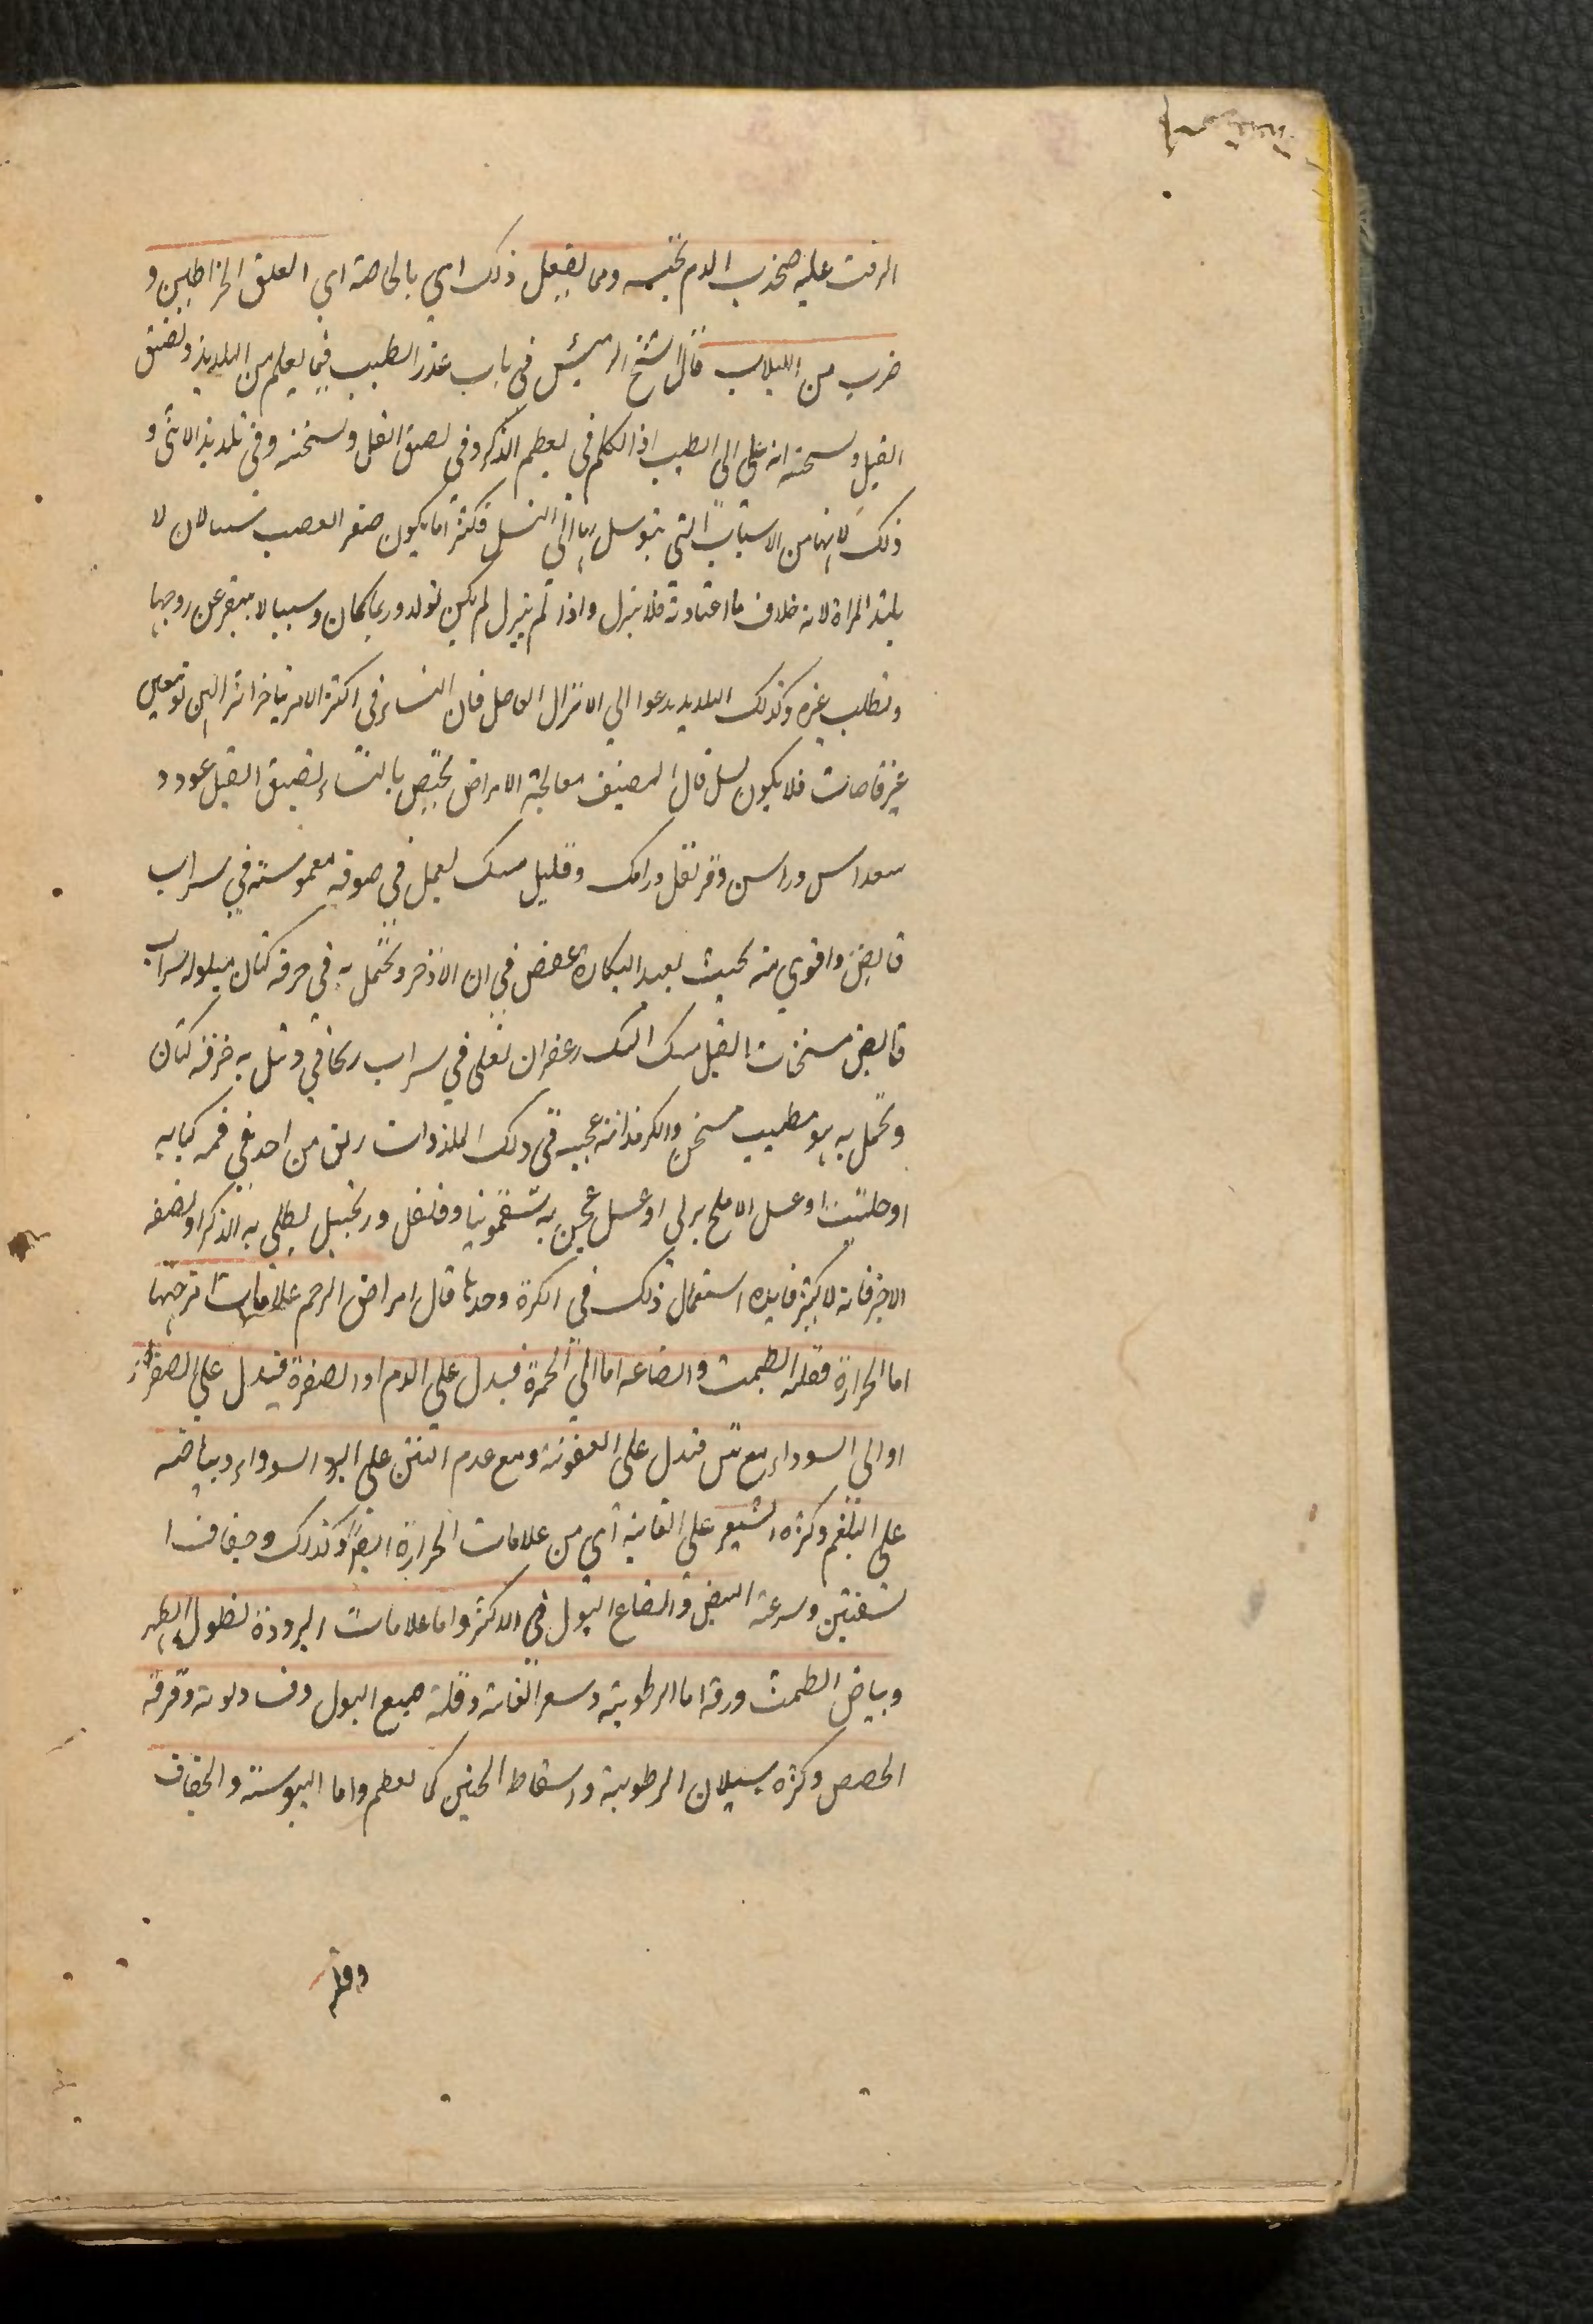 الزفت عليه فيجذب الدم بحبسه ومما يفعل ذلك اي بالخاصة اي العلق الخراطين و
ضرب من اللبلاب قال الشيخ الرئيس في باب عذر الطبيب فيما يعلم من التلذيذ وتضيق
القبل وتسخينه انه على الطبيب اذا تكلم في تعظيم الذكر وفي تضيق القبل وتسخينه وفي تلذيذ الانثى و
ذلك لانها من الاسباب التي يتوسل بها الى النسل فكثيرا ما يكون صغر القصب سببا لان لا
يلتذ المراة لانه خلاف ما اعتادته فلا ينزل واذا لم ينزل لم يكن تولد وربما كان وسببا لا ينفر عن زوجها
وتطلب غيره وكذلك التلذيذ يدعوا الي الانزال الفاصل فان النساء في اكثر الامر يتاخر انزالهن وتبقين
غير قاصات فلا يكون نسل قال المصنف معالجة الامراض يختص بالنساء لضيق القبل عود و
سعد اس وراسن وقرنفل ورامك وقليل مسك يعمل في صوفة مغموسة في سراب
قابض واقوي منه بحيث يعيد البكارة عفص في ان الاذخر وتحمل به في خرقة كتان مبلولة بسراب
قابض مسخنات القبل سك المسك زعفران تغلى في سراب ريحاني وتبل به خرقة كتان
وتحمل به هو مطيب مسخن والكرمدانة عجيبة في ذلك الملذذات ريق من اخذ في فمه كبابه
او حلتيت او عسل الاملج برلي او عسل عجن به سقمونيا وفلفل وزنجبيل يطلى به الذكر او نصفه
الاخر فانه لا يكثر فايده استعمال ذلك في الكرة وحدها قال امراض الرحم علامات امزجتها
اما الحرارة فقلة الطمث وانصباغه اما الي الحمرة فيدل على الدم او الصفرة فيدل علي الصفراء
او الي السوداء مع نتن فتدل على العفونة ومع عدم النتن على البرد السوداء وبياضه
على البلغم وكثرة الشعر على العانة اي من علامات الحرارة ايضا وكذلك وجفاف ا
لشفتين وسرعة النبض وانصباغ البول في الاكثر واما علامات البرودة فطول الطهر
وبياض الطمث ورقه اما الرطوبة وسعر العانة وقلة صبغ البول وفساد لونه ورقة
الحيض وكثرة سيلان الرطوبة واسقاط الجنين كما يعظم واما اليبوسة والجفاف
وقلة